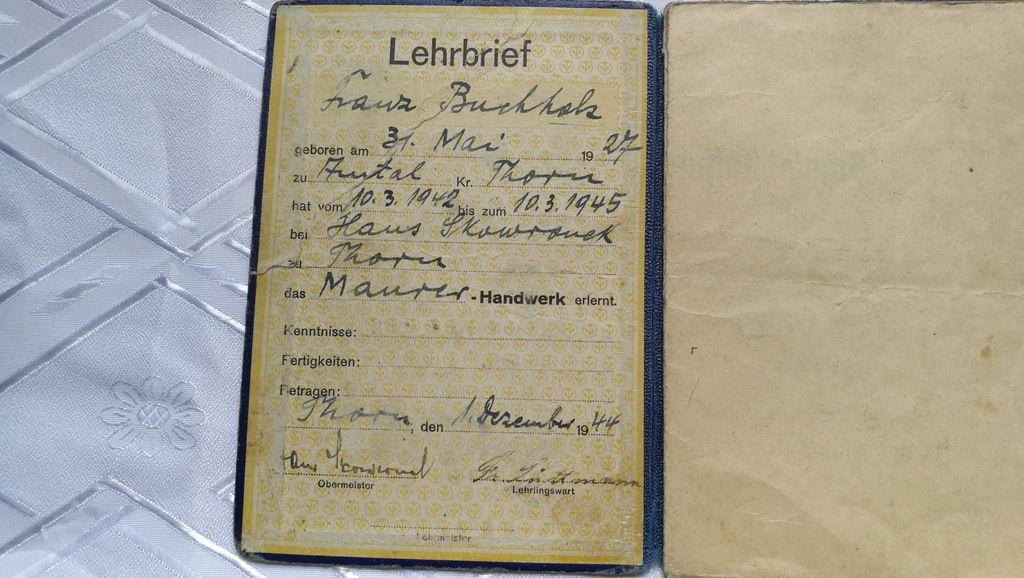 Lehrbrief
Franz Buchholz
geboren am 31. Mai 1927
zu Amtal Kr. Thorn
hat vom 10.3.1942 bis zum 10.3.1945
bei Hans Skowronek
zu Thorn
das Maurer-Handwerk erlernt.
Kenntnisse:
Fertigkeiten:
Betragen:
Thorn, den 1. Dezember 1944
Obermeister
Lehrlingswart
Lehrmeister